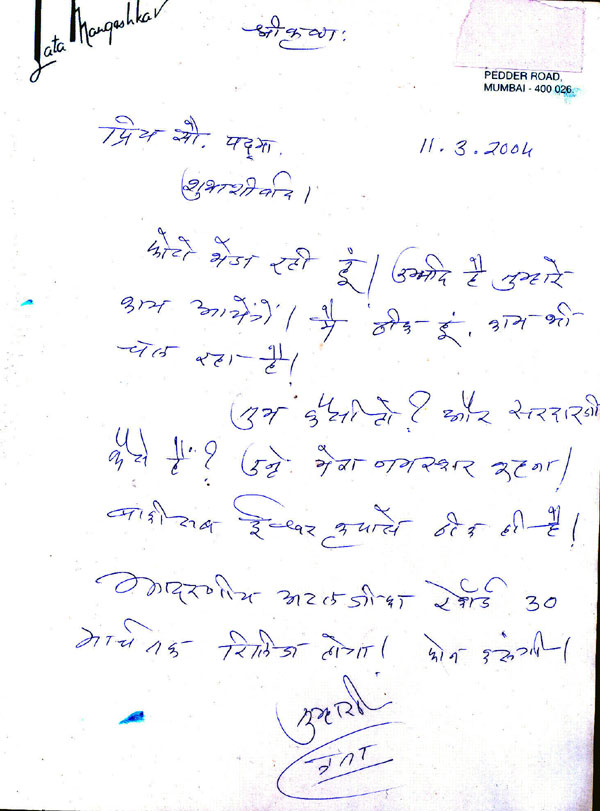 Lata Mangeshkar
श्रीकृष्ण:
PEDDER ROAD,
MUMBAI - 400 026.
प्रिय सौ. पद्मा.
11.3.2004
शुभाशीर्वाद।
फोटो भेज रही हूं। उम्मीद है तुम्हारे
काम आयेंगे। मैं ठीक हूं. काम भी
चल रहा है।
तुम कैसी हो? और सरदारजी
कैसे हैं? उन्हें मेरा नमस्कार कहना।
बाकी सब ईश्वर कृपासे ठीक ही है।
आदरणीय अटलजीका रेकॉर्ड 30
मार्च तक रिलिज होगा। फोन करूंगी।
तुम्हारी
लता